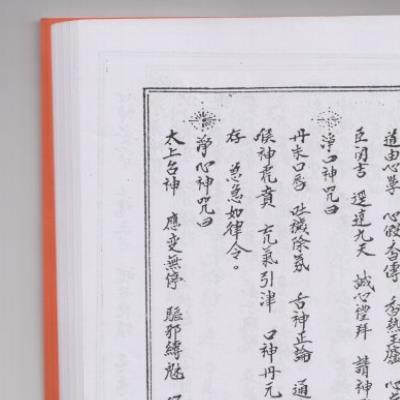 道由心學 心假香傳 香熱玉爐 心
臣明吉 逕達九天 誠心禮拜 請神
淨口神咒曰
丹朱口唇 吐穢除氛 舌神正論 通
候神虎賁 亢氣引津 口神丹元
存 急急如律令。
淨心神咒曰
太上台神 應变無停 驅邪縛魅